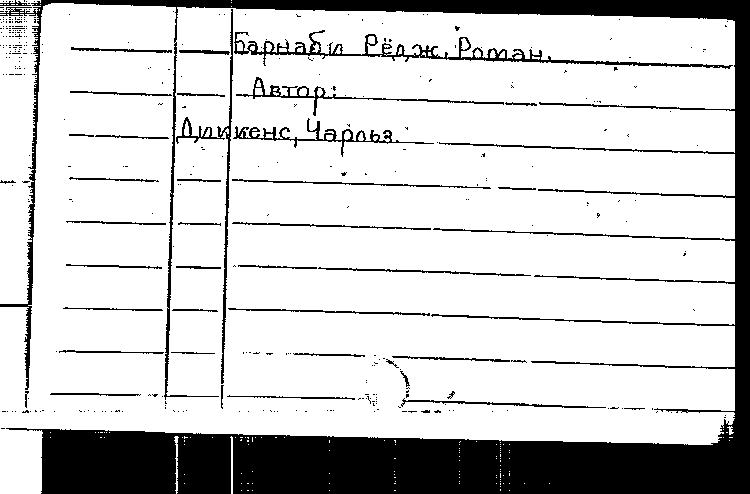 Барнаби Рёдж. Роман.
Автор:
Диккенс, Чарльз.